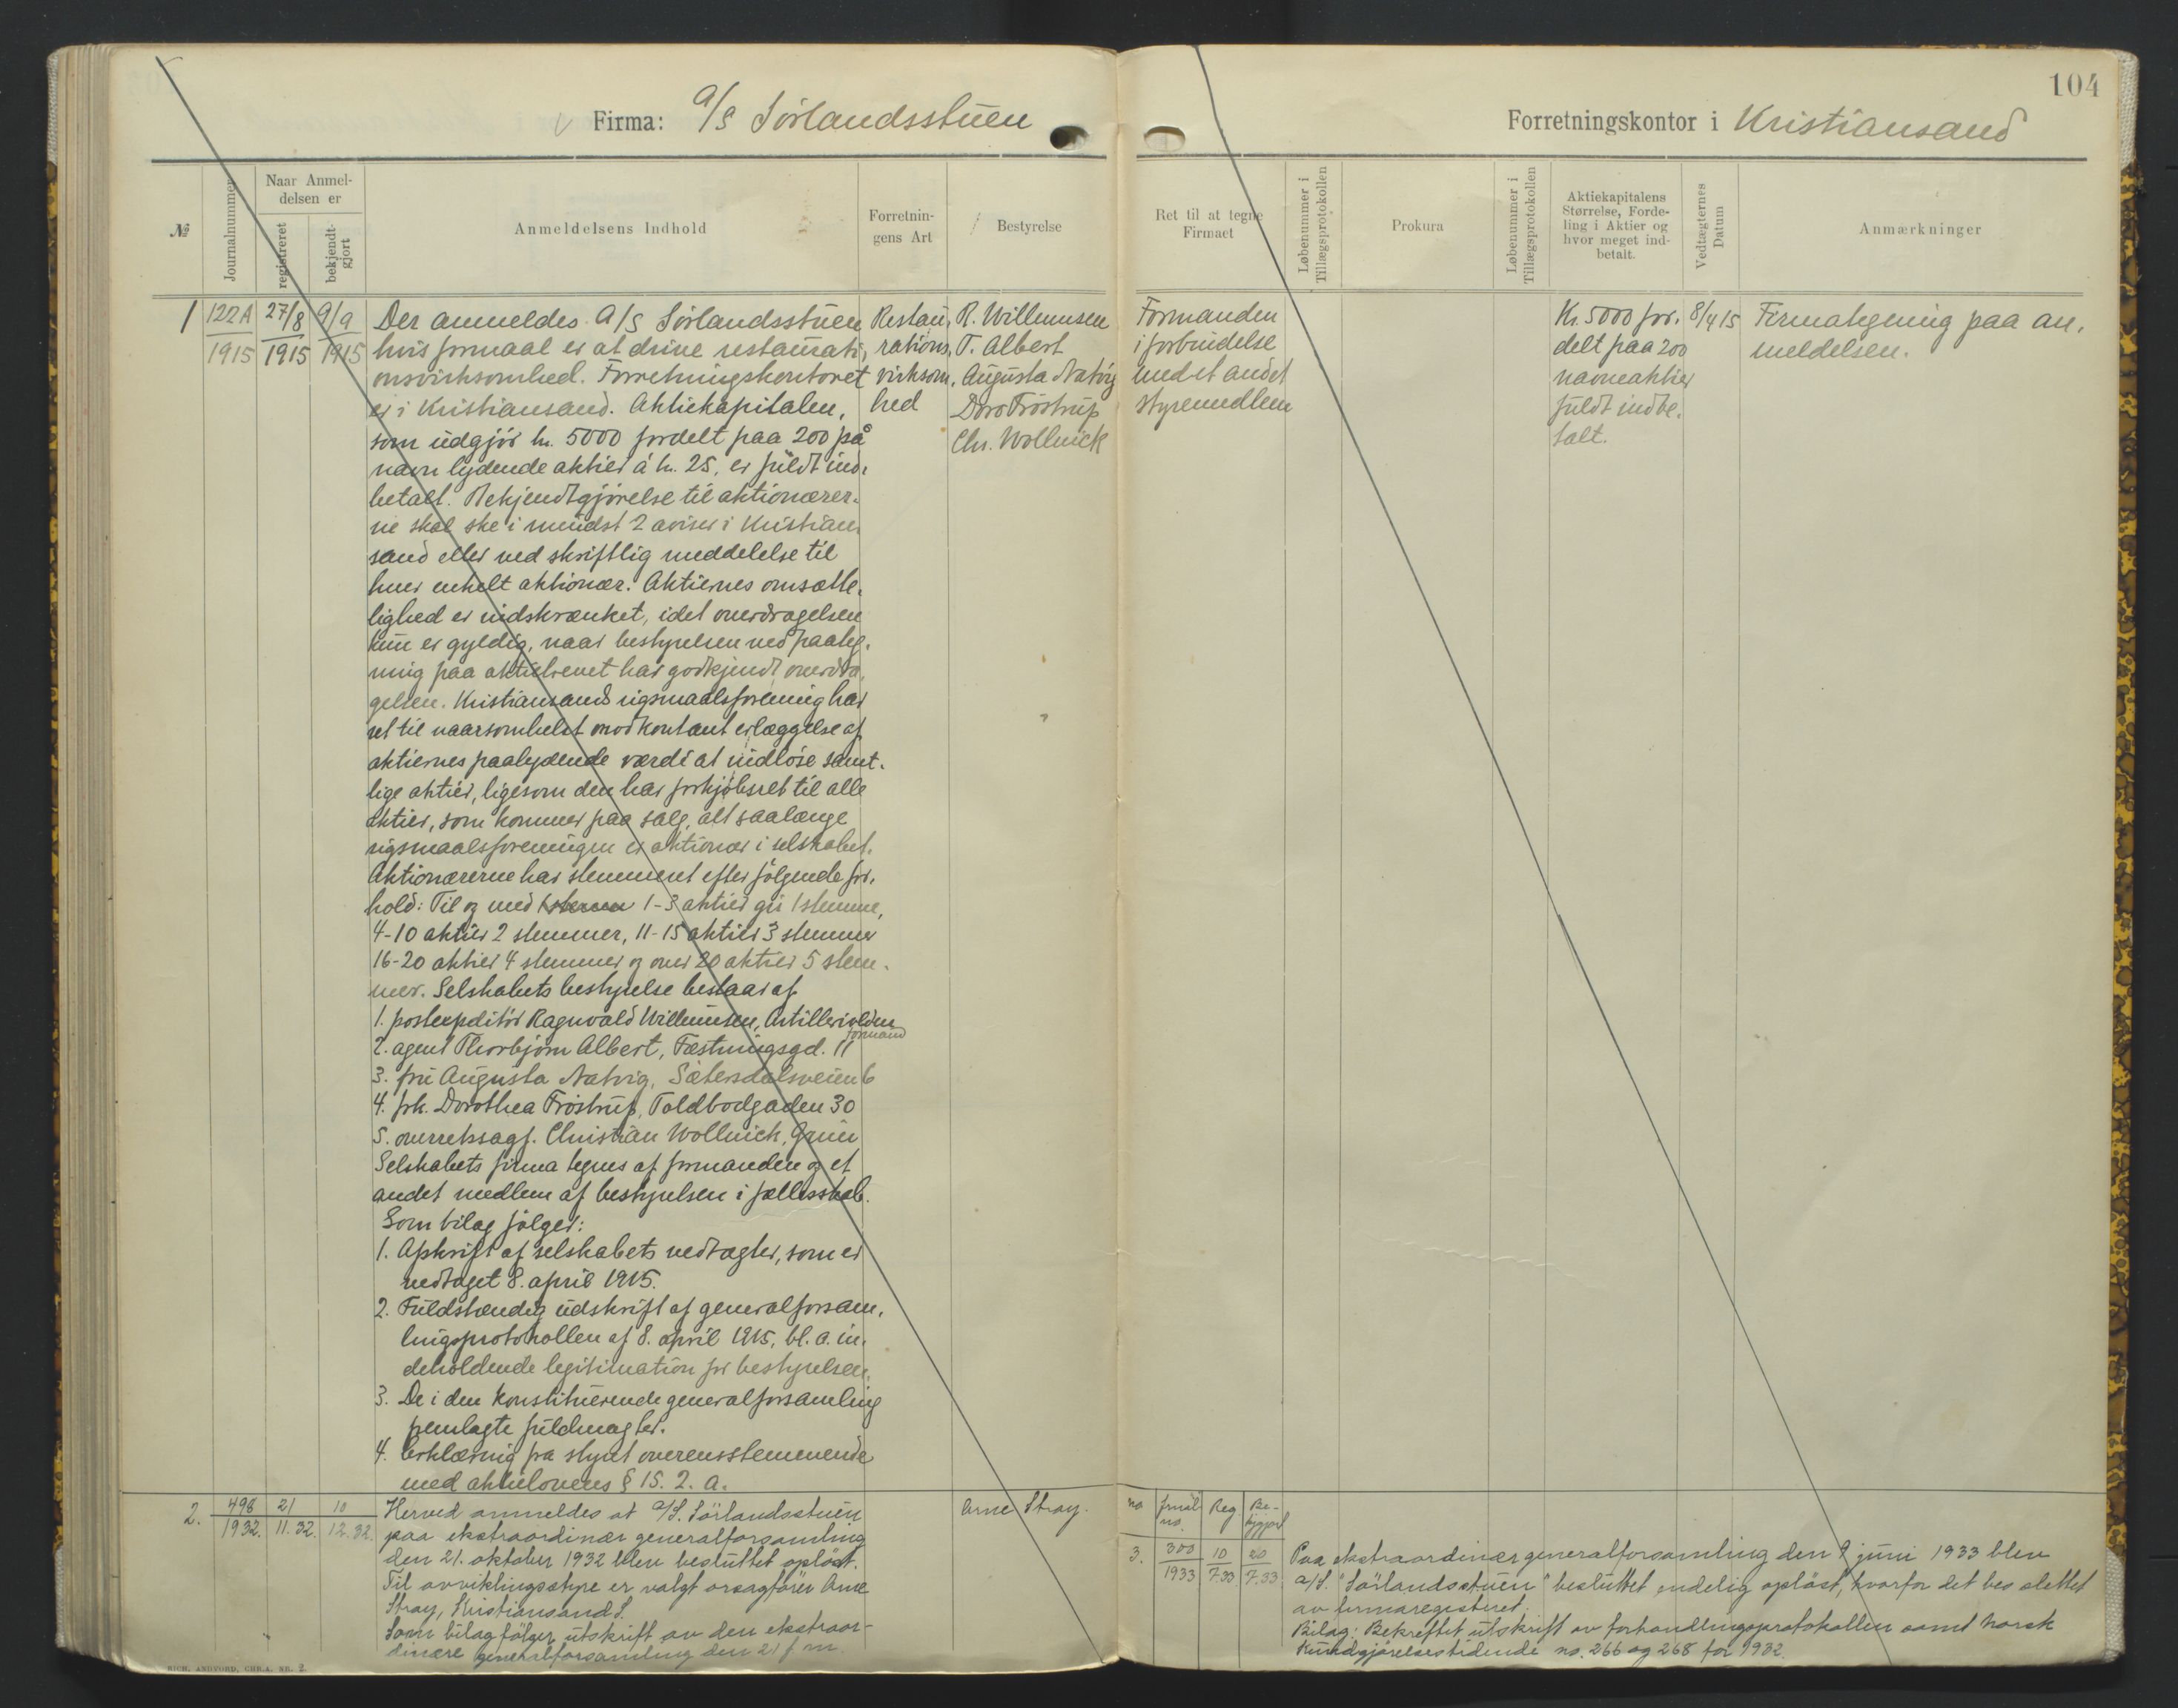 104
Firma: A/S Sörlandsstuen
Forretningskontor i Kristiansand
№
Journalnummer
Naar Anmel-
delsen er
registreret
bekjendt-
gjort
Anmeldelsens Indhold
Forretnin-
gens Art
Bestyrelse
Ret til at tegne
Firmaet
Løbenummer i
Tillægsprotokollen
Prokura
Løbenummer i
Tillægsprotokollen
Aktiekapitalens
Størrelse, Forde-
ling i Aktier og
hvor meget ind-
betalt.
Vedtægternes
Datum
Anmærkninger
1
122A
1915
27/8
1915
9/9
1915
Der anmeldes A/S Sörlandsstuen
hvis formaal er at drive restaurati-
onsvirksomhed. Forretningskontoret
er i Kristiansand. Aktiekapitalen,
som udgjör kr. 5000 fordelt paa 200 på
navn lydende aktier á kr. 25, er fuldt ind-
betalt. Bekjendtgjörelse til aktionærer-
ne skal ske i mindst 2 aviser i Kristian-
sand eller ved skriftlig meddelelse til
hver enkelt aktionær. Aktiernes omsætte-
lighed er indskrænket, idet overdragelsen
kun er gyldig, naar bestyrelsen ved paateg-
ning paa aktiebrevet har godkjendt overdra-
gelsen. Kristiansands rigsmaalsforening har
ret til naarsomhelst mod kontant erlæggelse af
aktiernes paalydende værdi at indlöse samt-
lige aktier, ligesom den har forkjöbsret til alle
aktier, som kommer paa salg, alt saalænge
rigsmaalsforeningen er aktionær i selskabet.
Aktionærerne har stemmeret efter fölgende for-
hold: Til og med 1-3 aktier gir 1 stemme,
4-10 aktier 2 stemmer, 11-15 aktier 3 stemmer
16-20 aktier 4 stemmer og over 20 aktier 5 stem-
mer. Selskabets bestyrelse bestaar af
1. postexpeditör Ragnvald Willumsen, Artillerivolden
formand
2. agent Thorbjörn Albert, Fæstningsgd. 11
3. fru Augusta Natvig, Sætersdalsveien 6
4. frk. Dorothea Fröstrup, Toldbodgaden 30
5. overretssagf. Christian Wollnick, Grim
Selskabets firma tegnes af formanden og et
andet medlem af bestyrelsen i fællesskab.
Som bilag fölger:
1. Afskrift af selskabets vedtægter, som er
vedtaget 8. april 1915.
2. Fuldstændig udskrift af generalforsam-
lingsprotokollen af 8. april 1915, bl. a. in-
deholdende legitimation for bestyrelsen.
3. De i den konstituerende generalforsamling
fremlagte fuldmagter.
4. Erklæring fra styret overensstemmende
med aktielovens § 15. 2. a.
Restau-
rations-
virksom-
hed
R. Willumsen
T. Albert
Augusta Natvig
Doro Fröstrup
Chr. Wollnick
Formanden
i forbindelse
med et andet
styremedlem
Kr. 5000 for-
delt paa 200
navneaktier
fuldt indbe-
talt.
8/4 15
Firmategning paa an-
meldelsen.
2.
498
1932.
21
11.32.
10
12.32.
Herved anmeldes at A/S. Sörlandsstuen
paa ekstraordinær generalforsamling
den 21. oktober 1932 blev besluttet oplöst.
Til avviklingsstyre er valgt orsagförer Arne
Stray, Kristiansand S.
Som bilag fölger utskrift av den ekstraor-
dinære generalforsamling den 21 f. m.
Arne Stray.
no
Jrnal
no.
Reg
Be-
kjgjort
3.
300
1933
10
7.33
20
7.33.
Paa ekstraordinær generalforsamling den 9 juni 1933 blev
a/S. "Sörlandsstuen" besluttet endelig oplöst, hvorfor det bes slettet
av firmaregisteret.
Bilag: Bekreftet utskrift av forhandlingsprotokollen samt Norsk
Kundgjörelsestidende no. 266 og 268 for 1932.
RICH. ANDVORD, CHR.A. NR. 2.